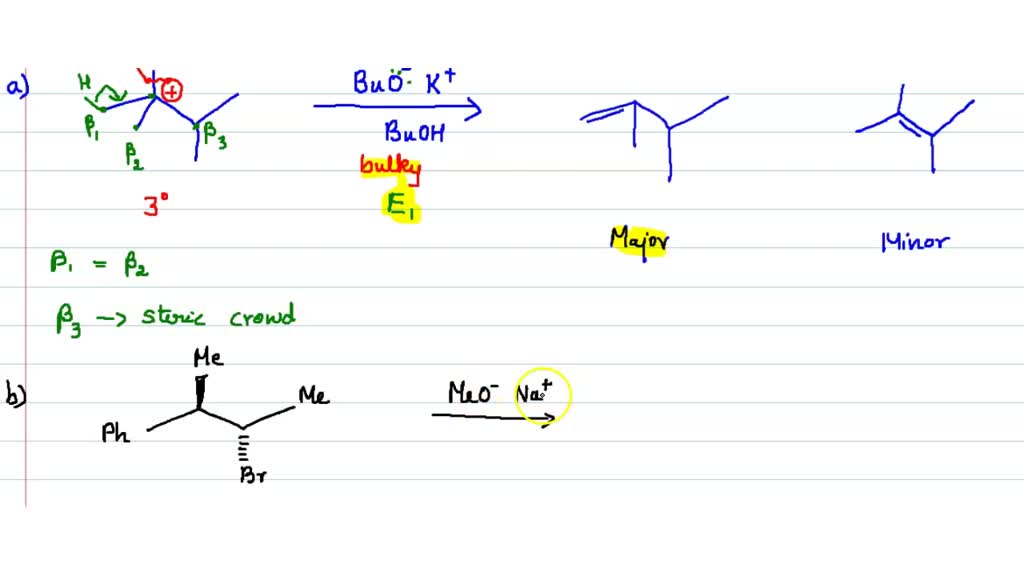 a) H β₁ β₂ β₃ + BuO⁻ K⁺
BuOH
bulky
3° E₁
Major Minor
β₁ = β₂
β₃ → steric crowd
Me
b) Ph Me MeO⁻ Na⁺
Br